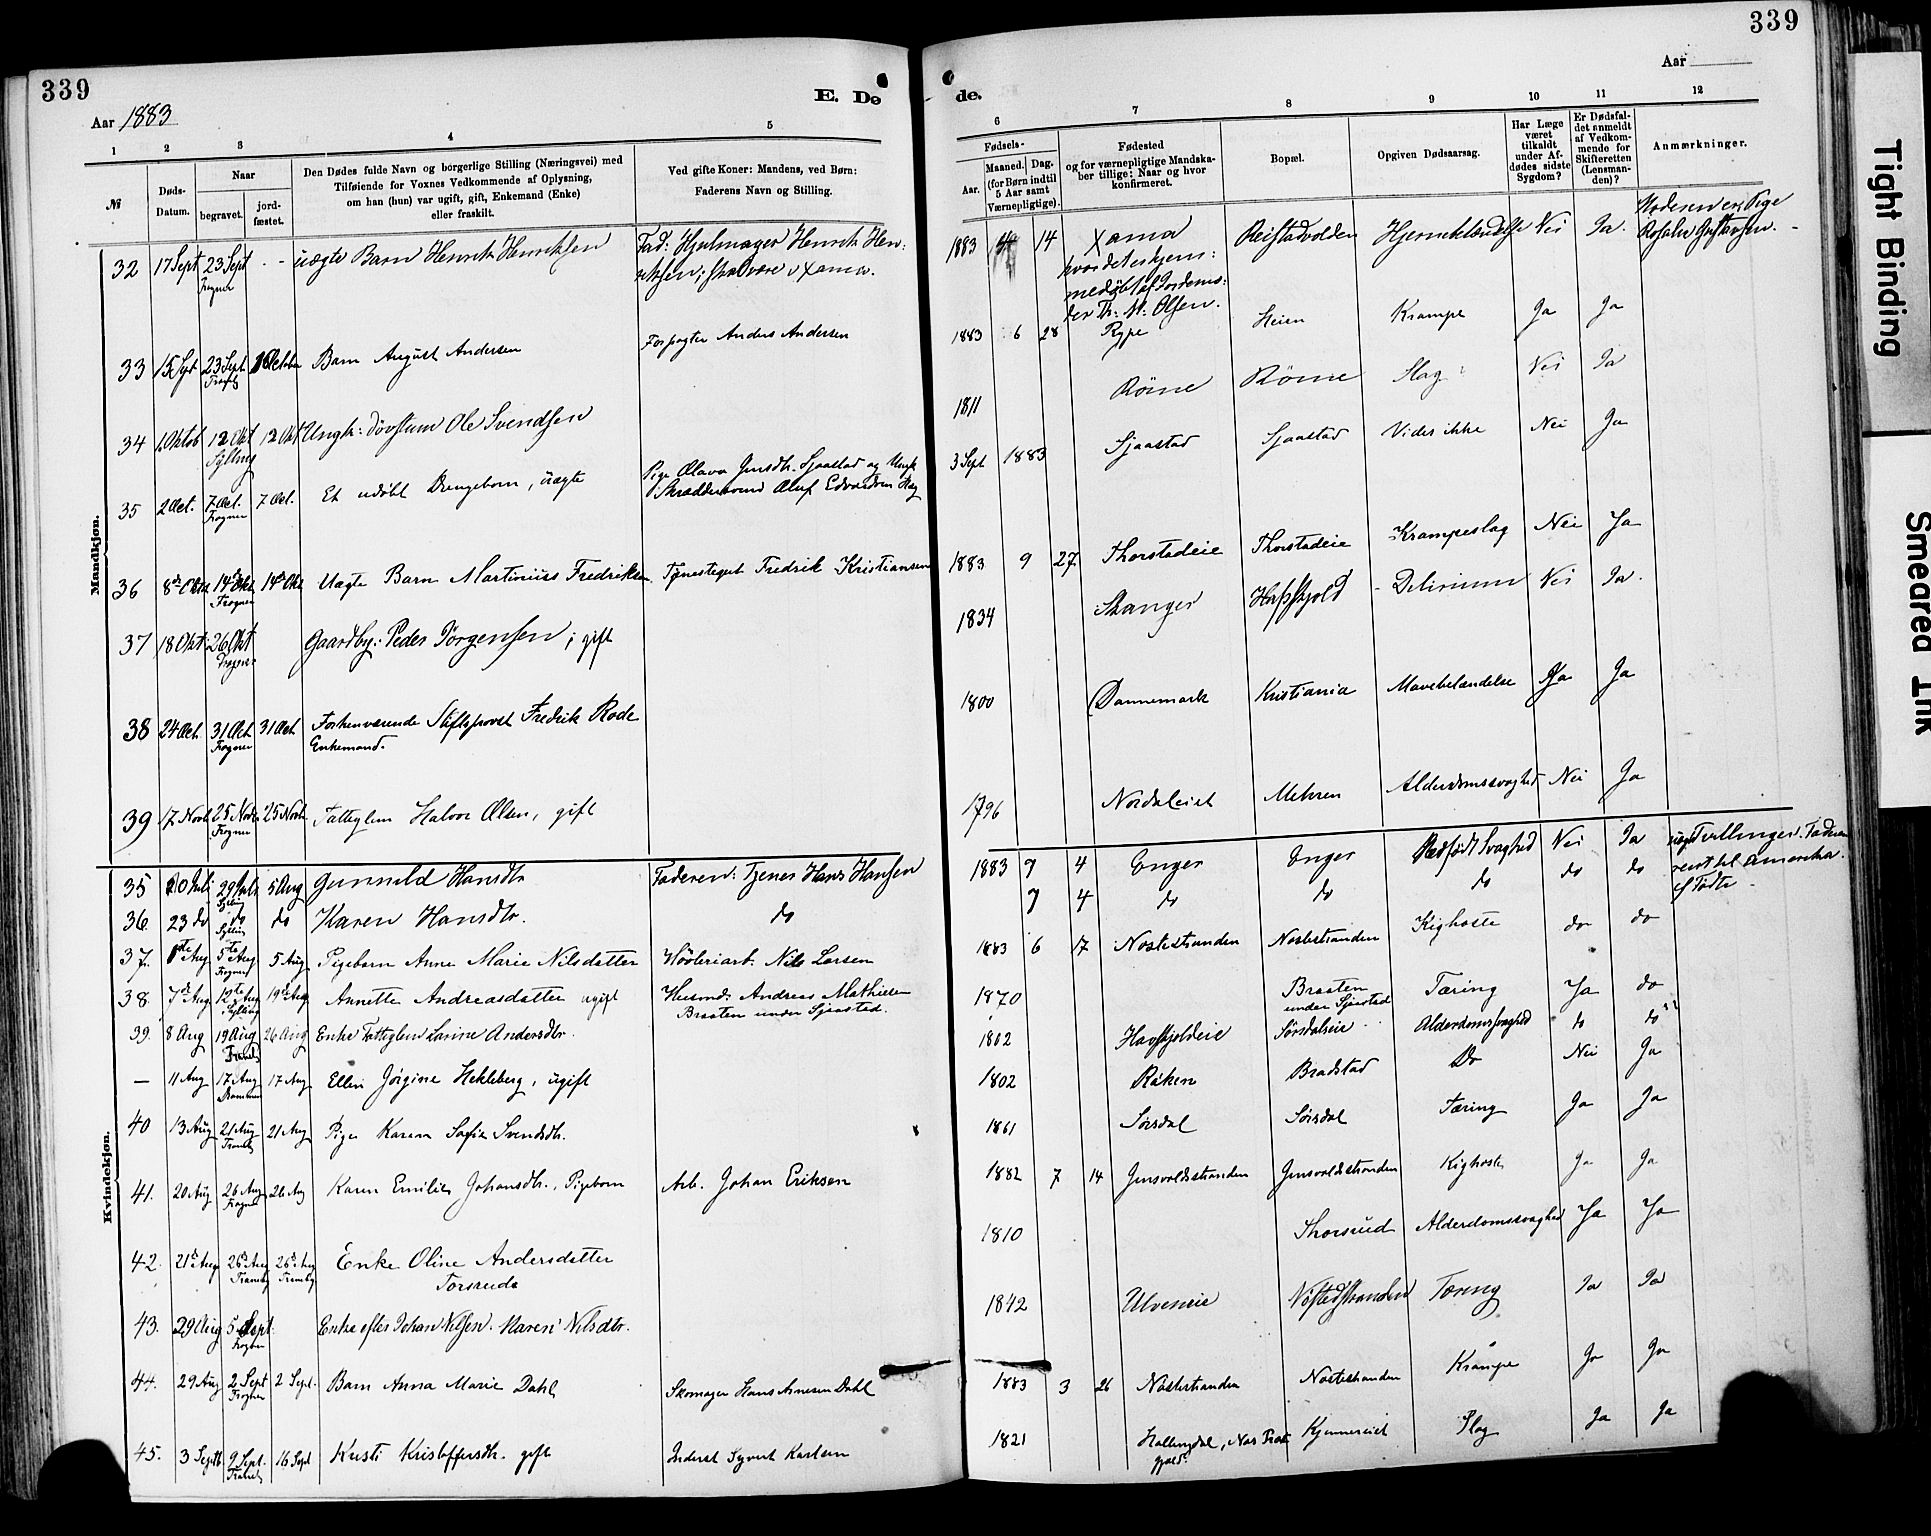 339
339
Aar 1883
E. De
de.
Aar
1
2
3
4
5
6
7
8
9
10
11
12
№
Døds-
Datum.
Naar
begravet.
jord-
fæstet.
Den Dødes fulde Navn og borgerlige Stilling (Næringsvei) med
Tilføiende for Voxnes Vedkommende af Oplysning,
om han (hun) var ugift, gift, Enkemand (Enke)
eller fraskilt.
Ved gifte Koner: Mandens, ved Børn:
Faderens Navn og Stilling.
Fødsels-
Aar.
Maaned.
Dag.
(for Børn indtil
5 Aar samt
Værnepligtige).
Fødested
og for værnepligtige Mandska-
ber tillige: Naar og hvor
konfirmeret.
Bopæl.
Opgiven Dødsaarsag.
Har Læge
været
tilkaldt
under Af-
dødes sidste
Sygdom?
Er Dødsfal-
det anmeldt
af Vedkom-
mende for
Skifteretten
(Lensman-
den)?
Anmærkninger.
Mandkjøn.
32 17 Sept 23 Sept Frogner - - uægte Barn Henrik Henriksen Fad: Hjulmager Henrik Hen-
riksen; skal være v Xania. 1883 14 Xania Reistadvolden Hjernebetændelse Nei Ja. Moderen er Pige
hvor det er hjem:
medøbt af Jordemo:
der Th: M: Olsen.
33 15 Sept 23 Sept Barn August Andersen Forpagter Anders Andersen 1883 6 28 Rype Heien Krampe Ja Ja
34 1 Oktob 12 Okt Sylling 12 Okt Ungk: døvstum Ole Svendsen 1811 Röine Röine Slag Nei Ja
35 2 Oct. 7 Oct. Frogner 7 Oct. Et udøbt Drengebarn, uægte Pige Olava Jensdtr. Sjaastad og Ungk
Skræddersvend Oluf Edvardsen 3 Sept 1883 Sjaastad Sjaastad Vides ikke Nei Ja
36 8de Okt 14de Okt Frogner 14de Okt Uægte Barn Martinius Fredriksen Tjenestegut Fredrik Kristiansen 1883 9 27 Thorstadeie Thorstadeie Krampeslag Nei Ja
37 18 Okt 26 Okt Frogner Gaardbr: Peder Jörgensen; gift 1834 Stanger Hafskjold Delirium Nei Ja.
38 24 Oct. 31 Oct Frogner 31 Oct Forhenværende Stiftsprovst Fredrik Rode
Enkemand. 1800 Dannemark Kristiania Mavebetændelse Ja Ja
39 17 Novb 25 Novbr Frogner 25 Novbr Fattiglem Halvor Olsen, gift 1796 Nordaleiet Mehren Alderdomssvaghed Nei Ja
Kvindekjøn.
35 20 Juli 29 Juli Sylling 5 Aug Gunnild Hansdtr Faderen: Tjener Hans Hansen 1883 7 4 Enger Enger Medfødt Svaghed Nei Ja Tvillinger. Faderen
reist til Amerika.
36. 23 do do Sylling do Karen Hansdtr. do 7 4 do do do do do
37. 1ste Aug 5te Aug Frogner 5 Aug Pigebarn Anne Marie Nilsdatter Høvleriarb. Nils Larsen 1883 6 17 Nøstestranden Nøstestranden Kighoste do do
38. 7de Aug 12te Aug Sylling 19de Aug Annette Andreasdatter ugift Husmd: Andreas Mathisen
Braaten under Sjaastad. 1870 Braaten
under Sjaastad Tæring Ja do
39. 8 Aug 19 Aug 26 Aug Enke Fattiglem Larine Andersdtr. 1802 Havskjoldeie Sørsdaleie Alderdomssvaghed do do
— 11 Aug 17 Aug Drammen 17 Aug Ellen Jörgine Hekleberg, ugift 1802 Røken Bradstad Do Nei Ja
40 13 Aug 21 Aug 21 Aug Pige Karen Sofie Svendsdtr. 1861 Sørsdal Sørsdal Tæring Ja Ja
41. 20 Aug 26 Aug Frogner 26 Aug Karen Emilie Johansdtr., Pigebarn Arb. Johan Eriksen 1882 7 14 Gunsvoldsstranden Gunsvoldsstranden Kighoste Ja Ja
42. 21de Aug 26de Aug Tranby 26de Aug Tranby Enke Oline Andersdatter
Torsrude 1810 Thorsrud Alderdomssvaghed Ja Ja
43. 29 Aug 5 Sept. Frogner Enke efter Johan Nilsen. Maren Nilsdtr. 1842 Ulveneie Nøstedstranden Tæring Ja Ja
44. 29 Aug 2 Sept Frogner 2 Sept. Barn Anna Marie Dahl Skomager Hans Arnesen Dahl 1883 3 26 Nøstestranden Nøstestranden Krampe Ja Ja
45. 3 Septb 9 Sept. 16 Sept Kristi Kristoffersdtr. gift Inderst Syvert Karlsen 1821 Hallingdal, Kjenneseiet Slag Ja Ja
Tight Binding
Smeared Ink